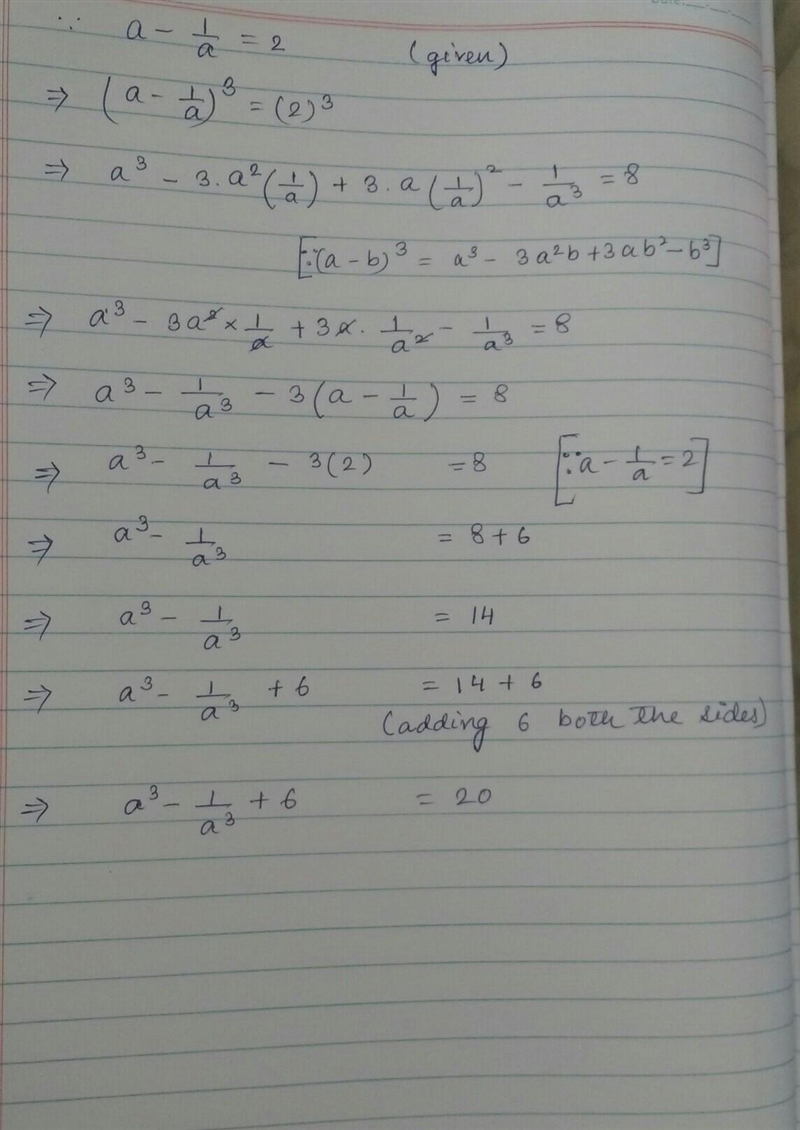 ∵ a - 1/a = 2 (given)
⇒ (a - 1/a)³ = (2)³
⇒ a³ - 3.a²(1/a) + 3.a(1/a)² - 1/a³ = 8
[∵(a-b)³ = a³ - 3a²b+3ab²-b³]
⇒ a³ - 3a² × 1/a + 3a. 1/a² - 1/a³ = 8
⇒ a³ - 1/a³ - 3(a - 1/a) = 8
⇒ a³ - 1/a³ - 3(2) = 8 [∵a - 1/a = 2]
⇒ a³ - 1/a³ = 8+6
⇒ a³ - 1/a³ = 14
⇒ a³ - 1/a³ + 6 = 14 + 6
(adding 6 both the sides)
⇒ a³ - 1/a³ + 6 = 20